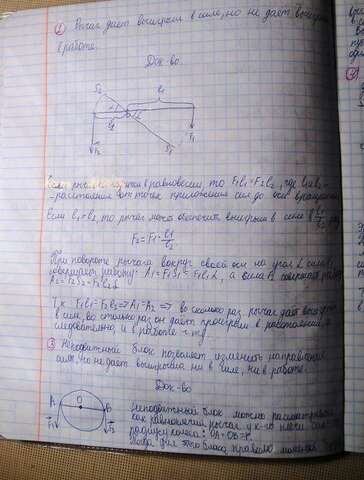 ① Рычаг дает выигрыш в силе, но не дает выигрыш
в работе.
Док-во
l₁
S₂
l₂
F₁
F₂
S₁
Если рычаг находится в равновесии, то F₁l₁=F₂l₂, где l₁ и l₂ -
- расстояния от точек приложения сил до оси вращения
Если l₁>l₂, то рычаг может обеспечить выигрыш в силе в l₁/l₂
F₂=F₁·l₁/l₂
При повороте рычага вокруг своей оси на угол α сила F₁
совершает работу: A₁=F₁S₁=F₁l₁α, а сила F₂ совершает работу
A₂=F₂S₂=F₂l₂α
Т.к. F₁l₁=F₂l₂ ⇒ A₁=A₂ ⇒ во сколько раз рычаг дает выигрыш
в силе, во столько раз он дает проигрыш в расстоянии, а
следовательно, и в работе
② Неподвижный блок позволяет изменить направление
силы, но не дает выигрыша ни в силе, ни в работе.
Док-во
A O B
F₁ F₂
Неподвижный блок можно рассматривать
как равноплечий рычаг, у к-го плечи равны
радиусу колеса: OA=OB=r.
Тогда для этого блока правило моментов